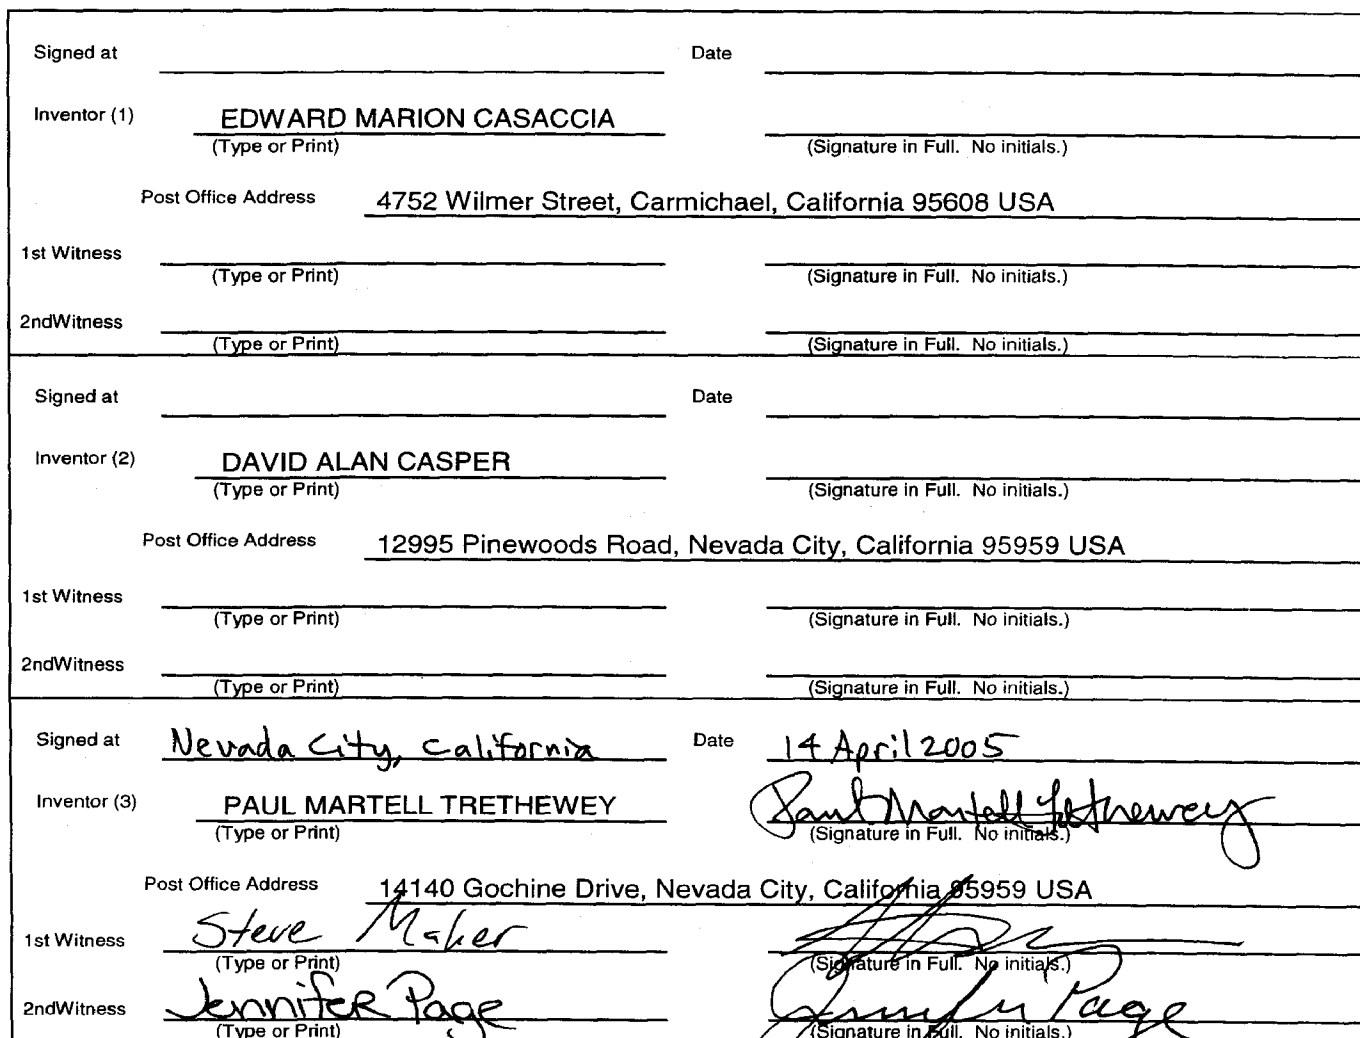 Signed at Date
Inventor (1) EDWARD MARION CASACCIA
(Type or Print) (Signature in Full. No initials.)
Post Office Address 4752 Wilmer Street, Carmichael, California 95608 USA
1st Witness
(Type or Print) (Signature in Full. No initials.)
2ndWitness
(Type or Print) (Signature in Full. No initials.)
Signed at Date
Inventor (2) DAVID ALAN CASPER
(Type or Print) (Signature in Full. No initials.)
Post Office Address 12995 Pinewoods Road, Nevada City, California 95959 USA
1st Witness
(Type or Print) (Signature in Full. No initials.)
2ndWitness
(Type or Print) (Signature in Full. No initials.)
Signed at Nevada City, California Date 14 April 2005
Inventor (3) PAUL MARTELL TRETHEWEY Paul Martell Trethewey
(Type or Print) (Signature in Full. No initials.)
Post Office Address 14140 Gochine Drive, Nevada City, California 95959 USA
1st Witness Steve Maher
(Type or Print) (Signature in Full. No initials.)
2ndWitness Jennifer Page Jennifer Page
(Type or Print) (Signature in Full. No initials.)